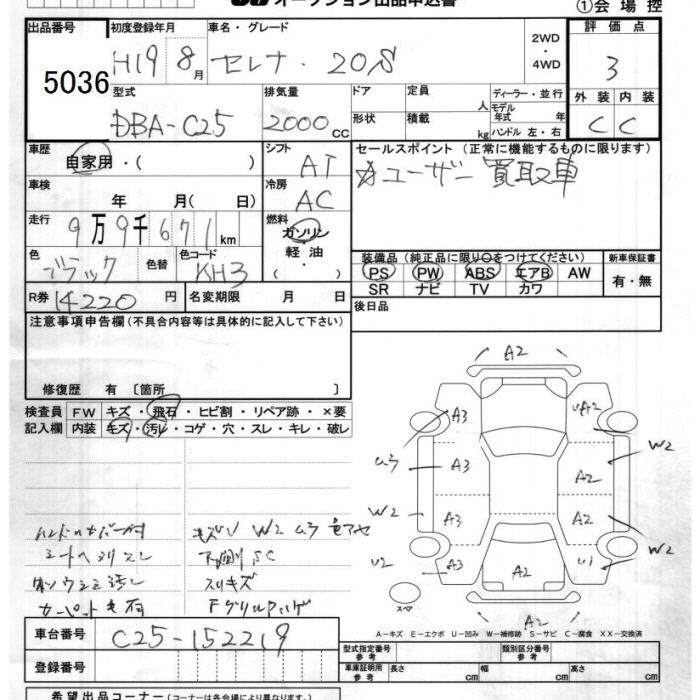 オークション出品申込書
①会場控
出品番号 5036
初度登録年月 H19 8月
車名・グレード セレナ・20S
2WD・4WD
評価点 3
外装 C 内装 C
型式 DBA-C25
排気量 2000cc
ドア 形状
定員 人
積載 kg
ディーラー・並行
モデル年式 年式
ハンドル 左・右
車歴 自家用・( )
シフト AT
車検 年 月( 日)
冷房 AC
走行 9万9千671km
燃料 ガソリン 軽油・( )
色 ブラック 色替
色コード KH3
R券 14220円
名変期限 月 日
セールスポイント (正常に機能するものに限ります)
☆ユーザー買取車
装備品 (純正品に限り○をつけてください)
PS PW ABS エアB AW
SR ナビ TV カワ
新車保証書 有・無
後日品
注意事項申告欄(不具合内容等は具体的に記入して下さい)
修復歴 有 〔箇所 〕
検査員記入欄
FW キズ・飛石・ヒビ割・リペア跡・×要
内装 キズ・汚レ・コゲ・穴・スレ・キレ・破レ
キズU W2
下廻りSC
スリキズ
A2
A3 UA2
U3 A3 A2 W2
W2 A3 A2 W2
U2 A3 A2 U1 W2
A2
スペア
A-キズ E-エクボ U-凹み W-補修跡 S-サビ C-腐食 XX-交換済
車台番号 C25-152219
登録番号
型式指定番号 参考
類別区分番号 参考
車庫証明用 参考 長さ cm 幅 cm 高さ cm
希望出品コーナー(コーナーは各会場により異なります。)